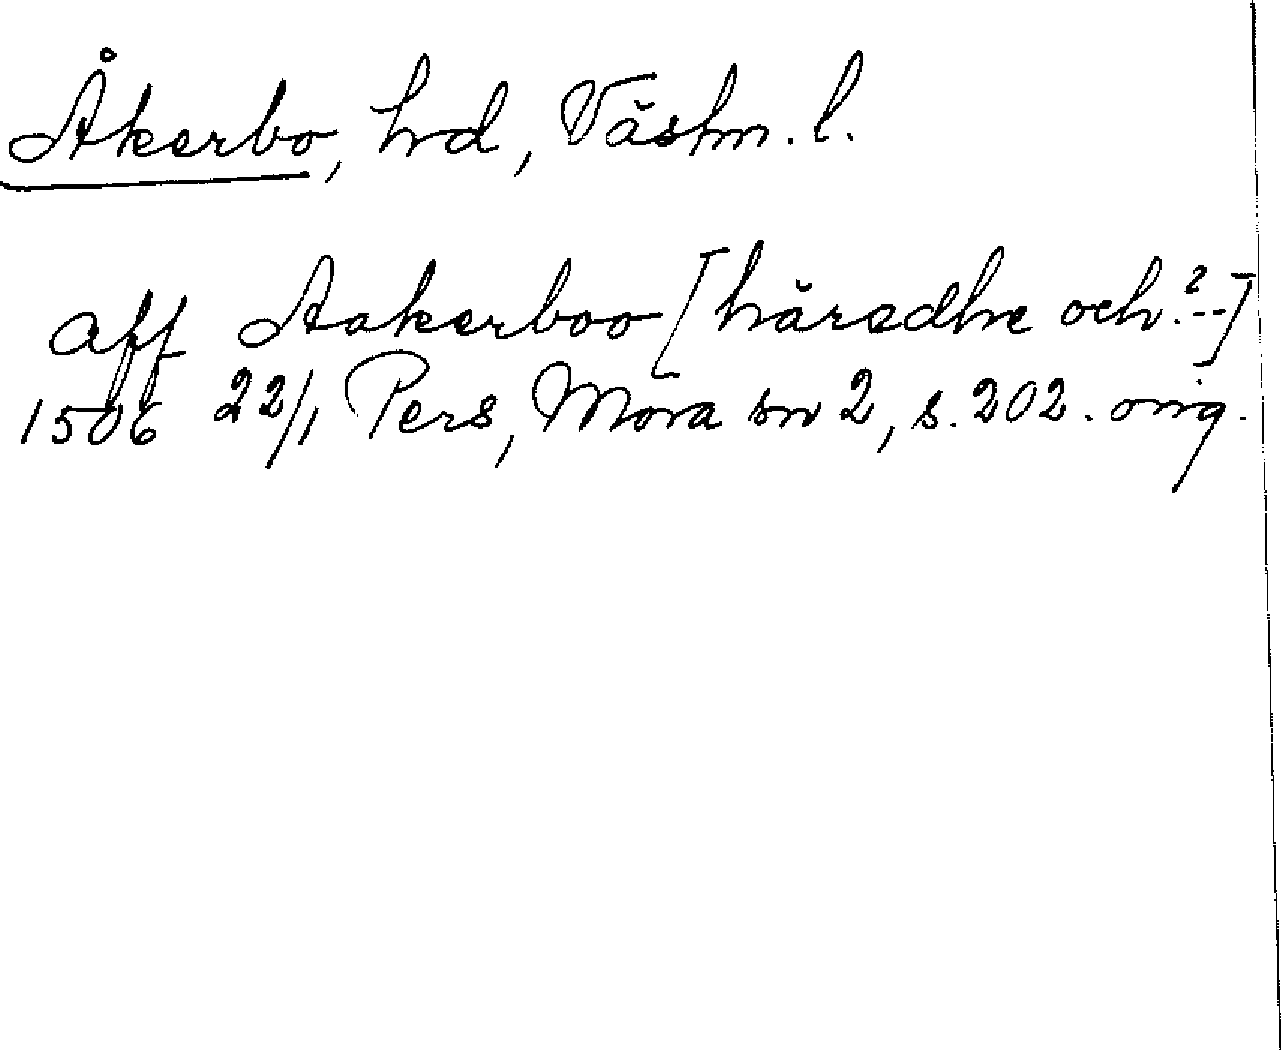 Åkerbo, hd, Västm. l.
aff Aakerboo [häredhe och?--]
1506 22/1 Pers, Mora sn 2, s. 202. orig.